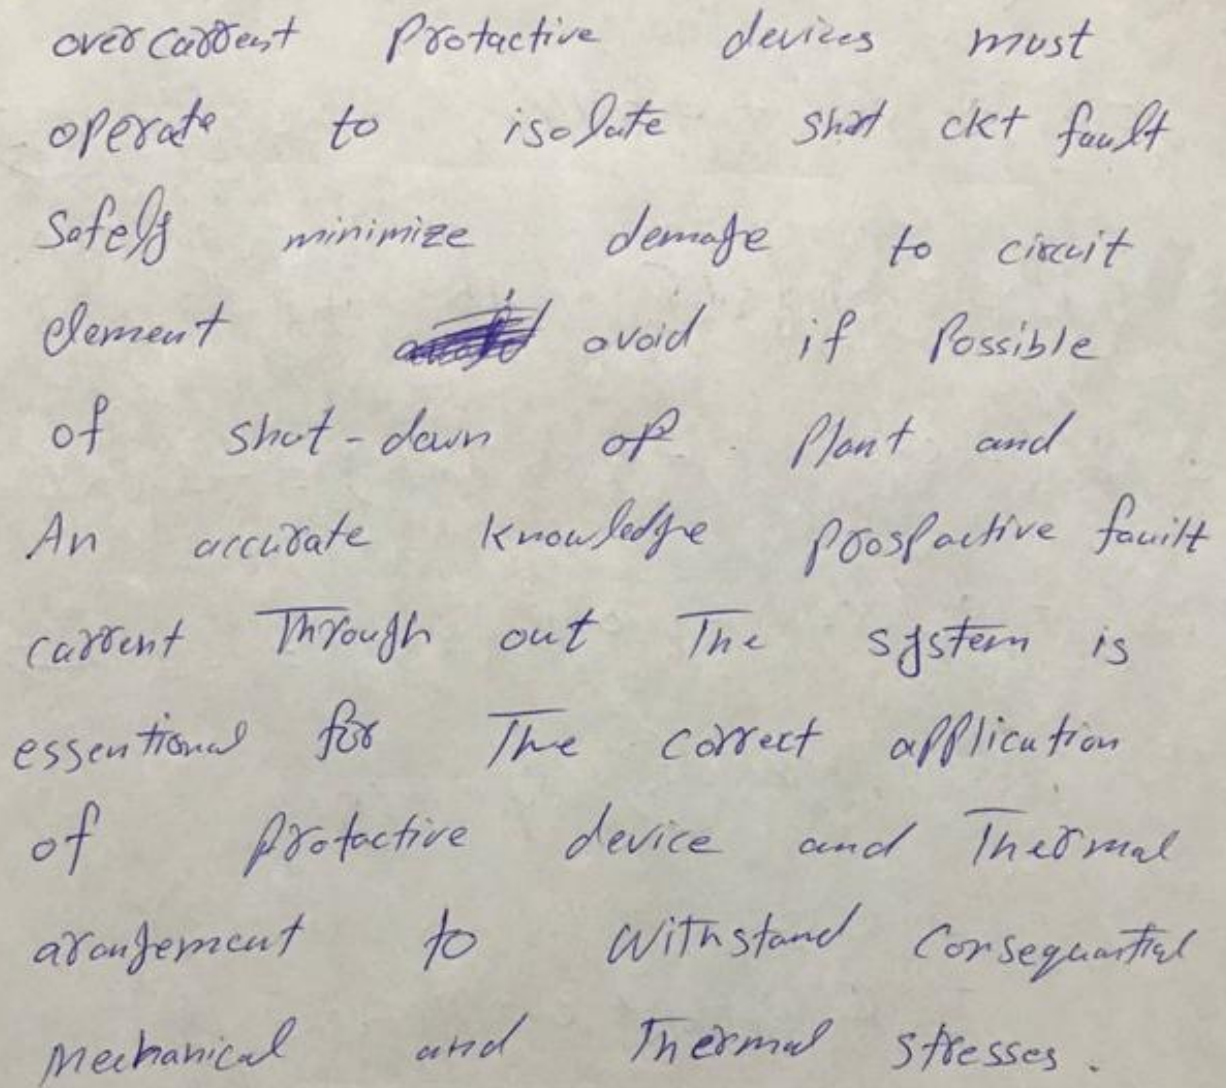 over current Protactive devices must
operate to isolate short ckt fault
Safely minimize demage to circuit
element avoid if Possible
of shut-down of Plant and
An accurate knowledge prospactive fauilt
current Through out The system is
essentional for The correct application
of protactive device and Thermal
arangement to withstand Consequantial
Mechanical and Thermal stresses.